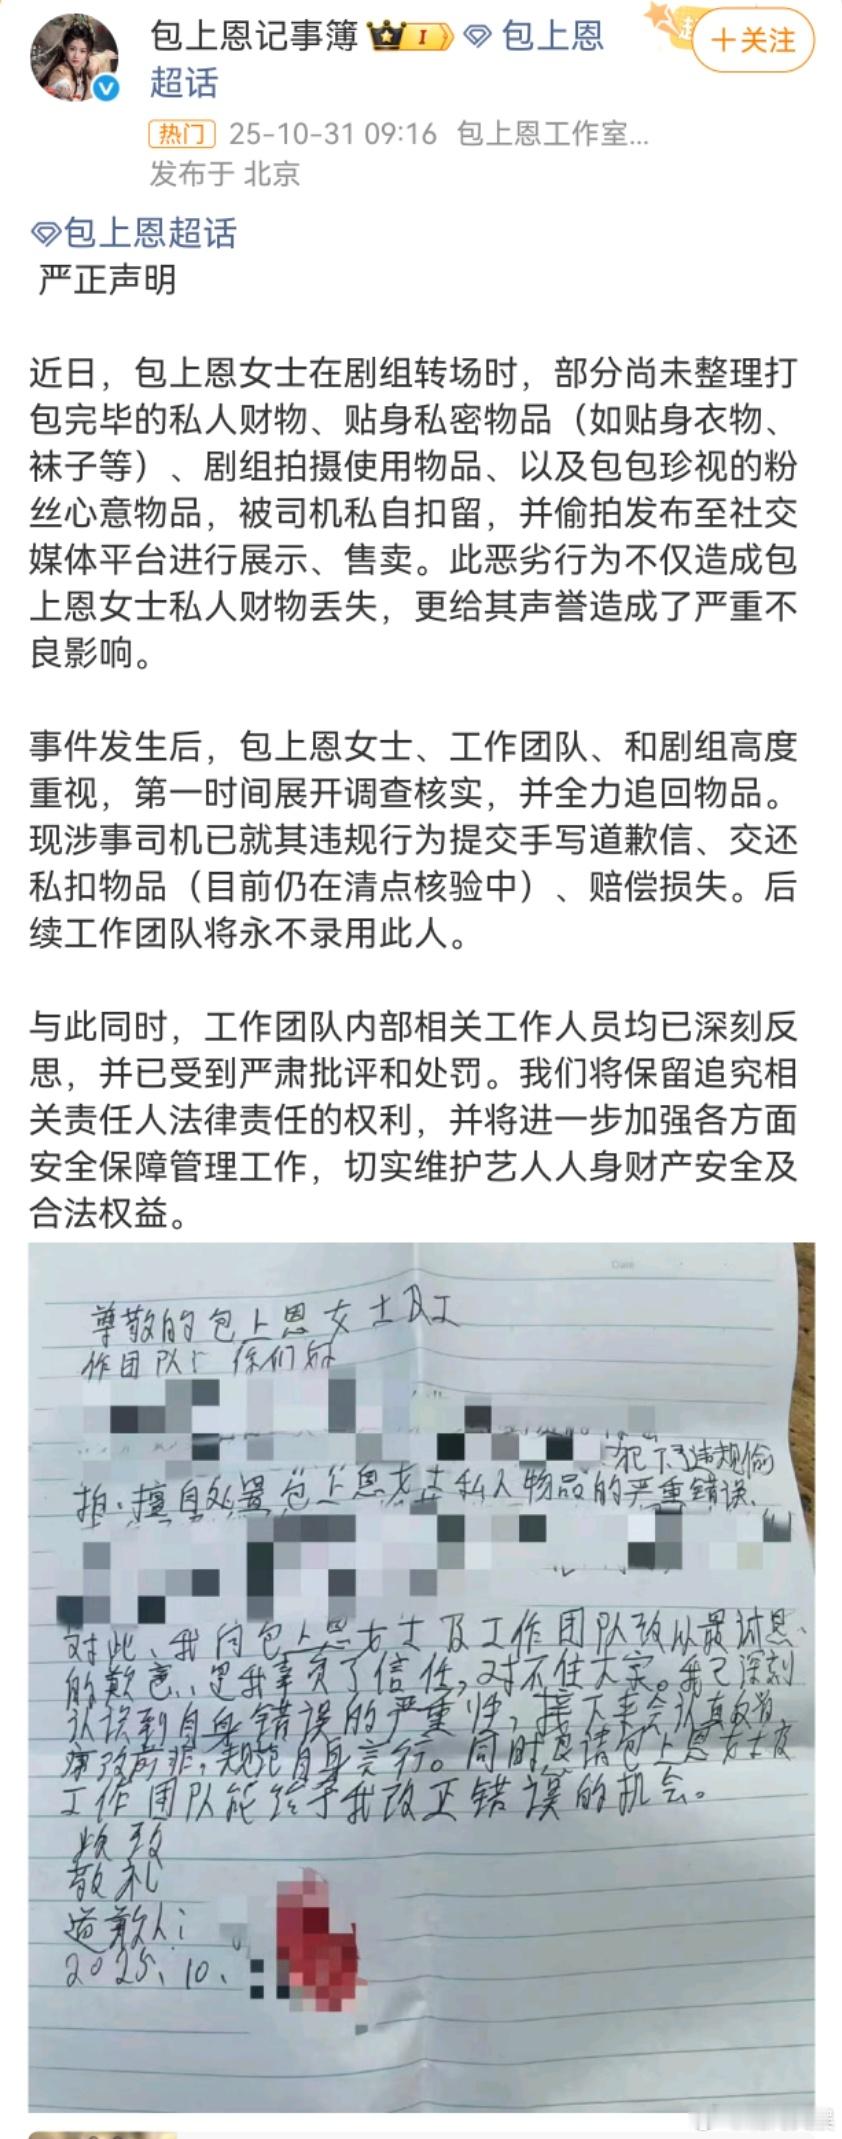 包上恩记事簿 I 包上恩
超话
+关注
热门 25-10-31 09:16 包上恩工作室...
发布于 北京
包上恩超话
严正声明
近日，包上恩女士在剧组转场时，部分尚未整理打
包完毕的私人财物、贴身私密物品（如贴身衣物、
袜子等）、剧组拍摄使用物品、以及包包珍视的粉
丝心意物品，被司机私自扣留，并偷拍发布至社交
媒体平台进行展示、售卖。此恶劣行为不仅造成包
上恩女士私人财物丢失，更给其声誉造成了严重不
良影响。
事件发生后，包上恩女士、工作团队、和剧组高度
重视，第一时间展开调查核实，并全力追回物品。
现涉事司机已就其违规行为提交手写道歉信、交还
私扣物品（目前仍在清点核验中）、赔偿损失。后
续工作团队将永不录用此人。
与此同时，工作团队内部相关工作人员均已深刻反
思，并已受到严肃批评和处罚。我们将保留追究相
关责任人法律责任的权利，并将进一步加强各方面
安全保障管理工作，切实维护艺人人身财产安全及
合法权益。
Date
尊敬的包上恩女士及工
作团队: 你们好
犯下了违规偷
拍、擅自处置包上恩女士私人物品的严重错误、
对此、我向包上恩女士及工作团队致以最诚恳
的歉意、是我辜负了信任，对不住大家。我已深刻
认识到自身错误的严重性，接下来会认真改过
痛改前非，规范自身言行。同时恳请包上恩女士及
工作团队能给予我改正错误的机会。
敬礼
道歉人:
2025、10、